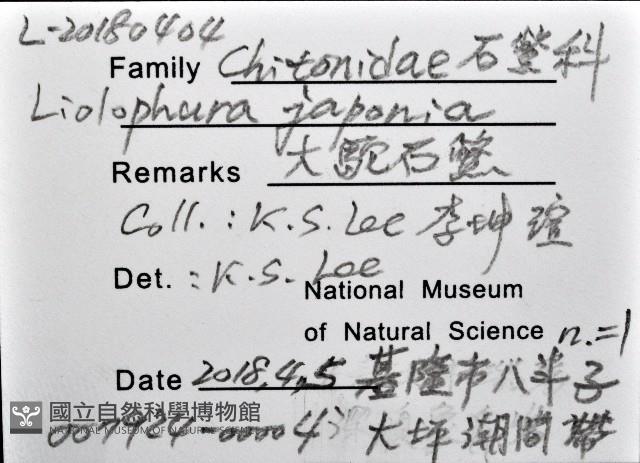 L-20180404
Family Chitonidae 石鱉科
Liolophura japonia
Remarks 大駝石鱉
Coll. : K.S. Lee 李坤瑄
Det. : K.S. Lee
National Museum
of Natural Science n.=1
Date 2018,4,5 基隆市八斗子
國立自然科學博物館
NATIONAL MUSEUM OF NATURAL SCIENCE
大坪潮間帶